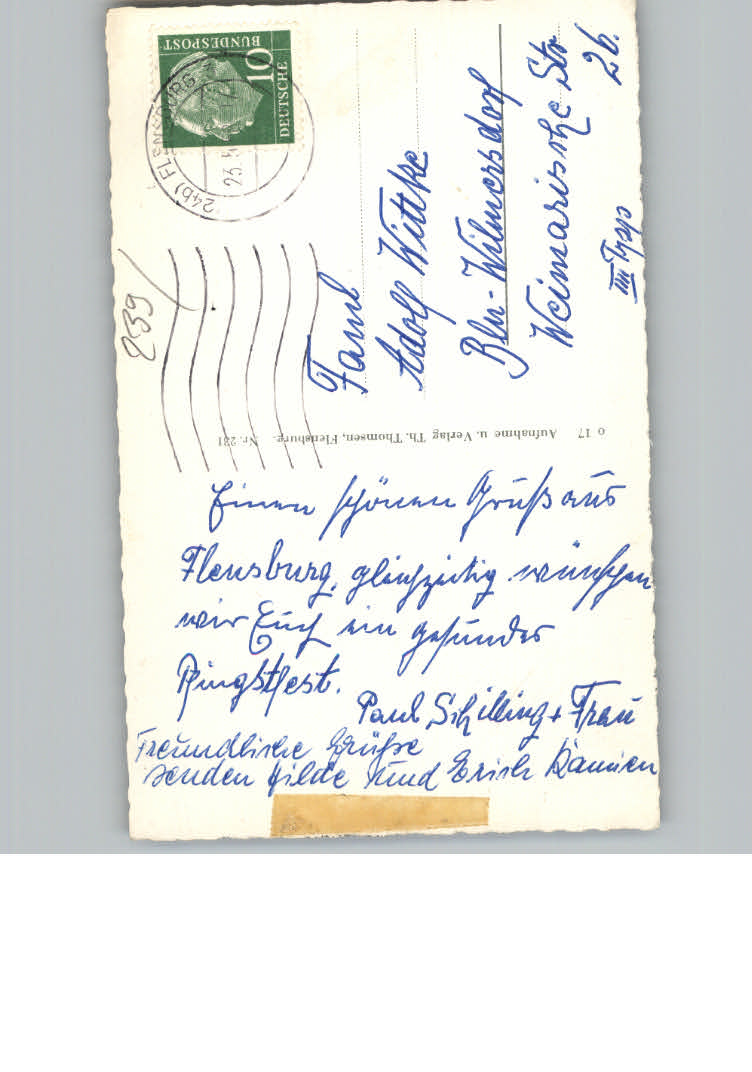 DEUTSCHE
BUNDESPOST
10
(24b) FLENSBURG
23.5
239
Faml
Adolf Wittke
Bln-Wilmersdorf
Weimarische Str 26.
III Trpp
o 17 Aufnahme u. Verlag Th. Thomsen, Flensburg. Nr. 231
Einen schönen Gruß aus
Flensburg, gleichzeitig wünschen
wir Euch ein gesundes
Pingstfest.
Paul Schilling + Frau
Freundliche Grüße
senden Hilde und Erich